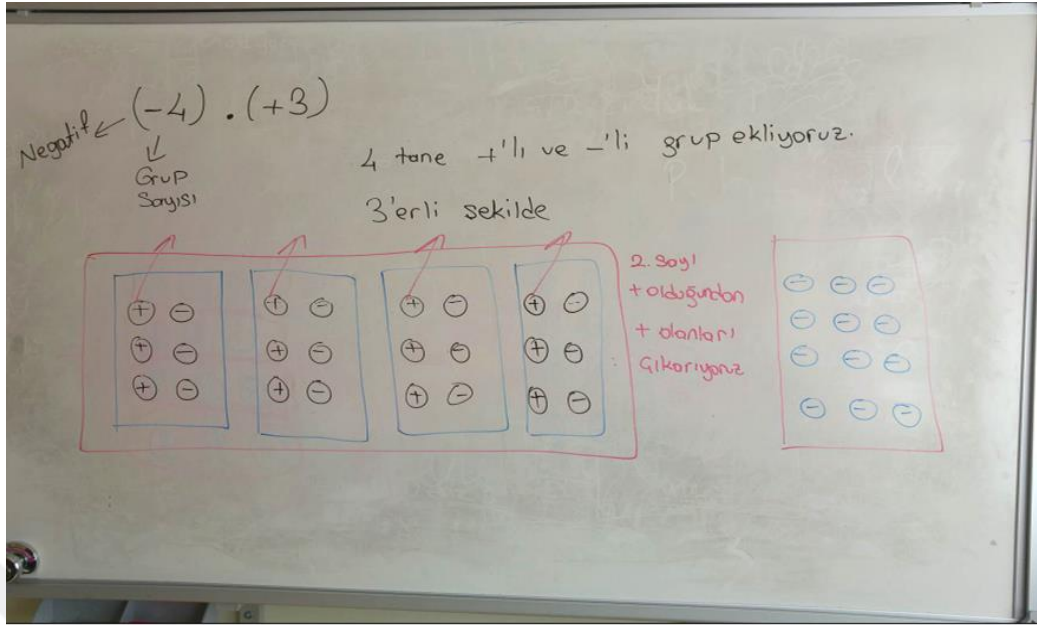 (-4) . (+3)
Negatif
Grup
Sayısı
4 tane +'lı ve -'li grup ekliyoruz.
3'erli sekilde
+ - + - + - + -
+ - + - + - + -
+ - + - + - + -
2. Sayı
+ olduğundan
+ olanları
Çıkarıyoruz
- - -
- - -
- - -
- - -
G